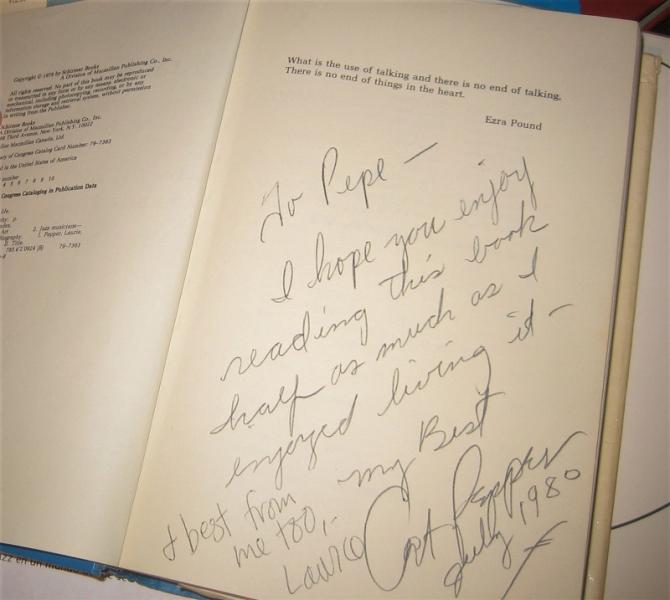 Copyright © 1979 by Schirmer Books
A Division of Macmillan Publishing Co., Inc.
All rights reserved. No part of this book may be reproduced
or transmitted in any form or by any means, electronic or
mechanical, including photocopying, recording, or by any
information storage and retrieval system, without permission
in writing from the Publisher.
Schirmer Books
A Division of Macmillan Publishing Co., Inc.
Third Avenue, New York, N.Y. 10022
Macmillan Canada, Ltd.
of Congress Catalog Card Number: 79-7363
in the United States of America
number
4 5 6 7 8 9 10
Congress Cataloging in Publication Data
life.
p.
2. Jazz musicians—
I. Pepper, Laurie,
II. Title.
79-7363
What is the use of talking and there is no end of talking,
There is no end of things in the heart.
Ezra Pound
To Pepe —
I hope you enjoy
reading this book
half as much as I
enjoyed living it —
my Best
Art Pepper
July 1980
& best from
me too,-
Laurie